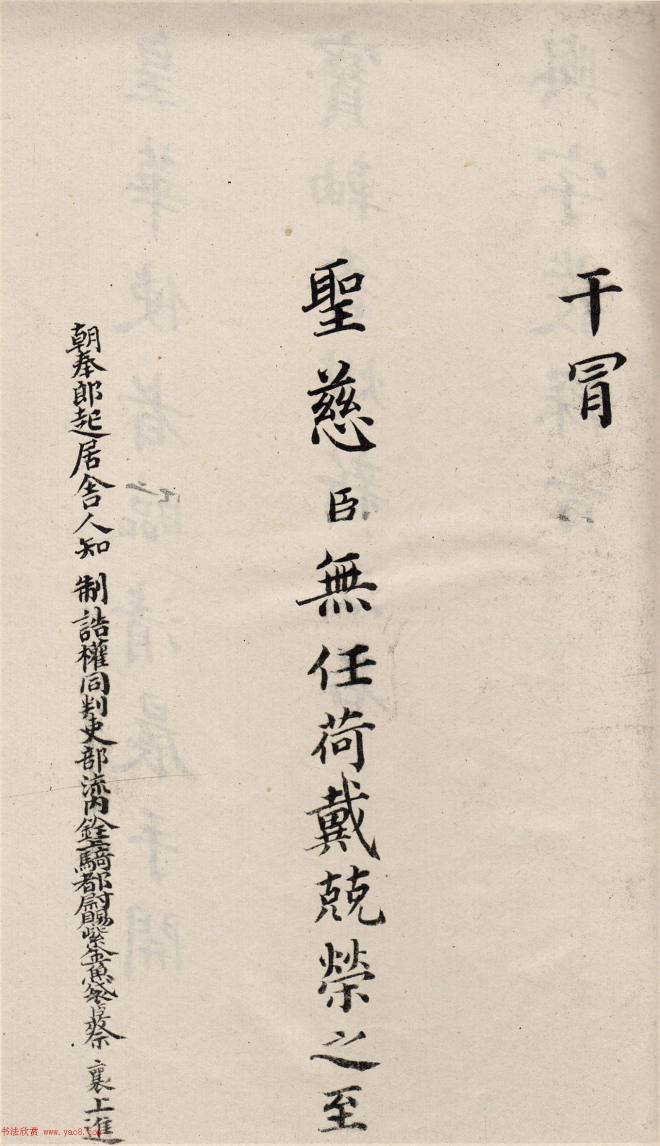 干冒
聖慈臣無任荷戴兢榮之至
朝奉郎起居舍人知 制誥權同判吏部流内銓騎都尉賜紫金魚袋臣蔡 襄上進
书法欣赏 www.yac8.com